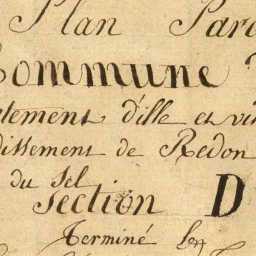 Plan Parc
Commune
tement d'ille et vi
dissement de Redon
du Sel
Section D
Terminé